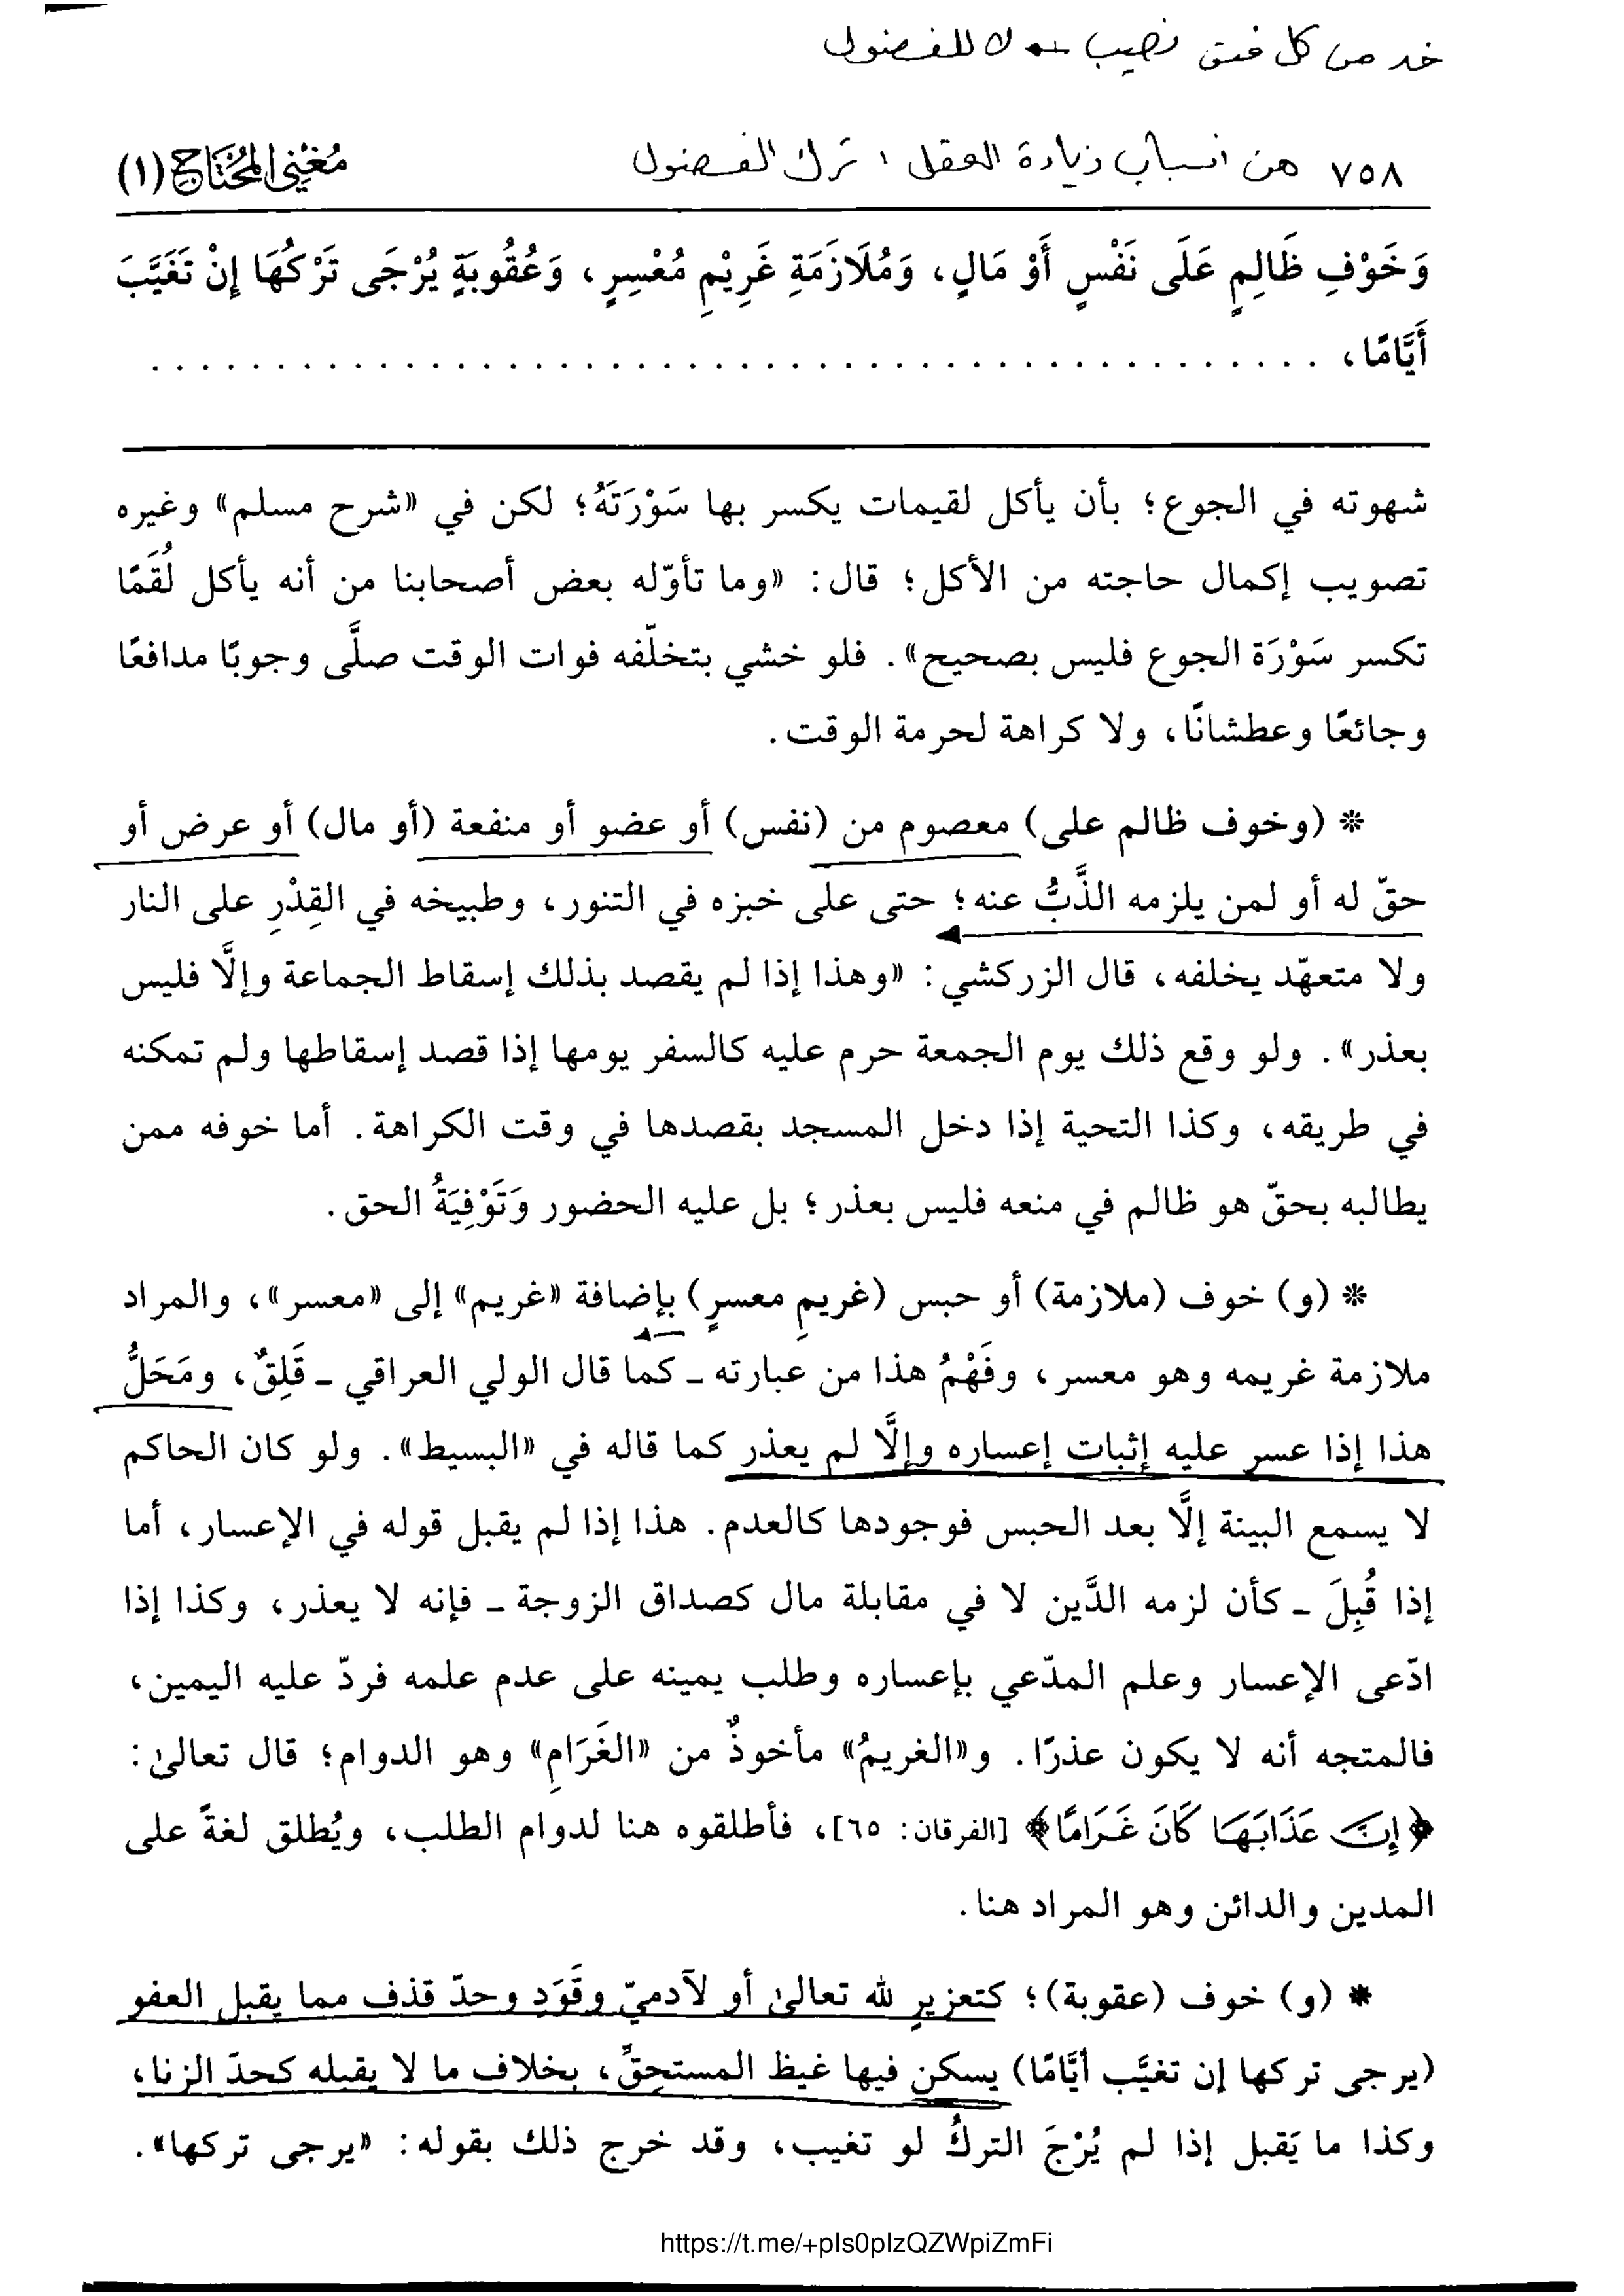 خذ من كل فن نصيب ← لا للفضول
٧٥٨ من أسباب زيادة العقل : ترك الفضول مُغْنِي المُحْتَاجِ (١)
وَخَوْفِ ظَالِمٍ عَلَى نَفْسٍ أَوْ مَالٍ، وَمُلَازَمَةِ غَرِيْمِ مُعْسِرٍ، وَعُقُوبَةٍ يُرْجَى تَرْكُهَا إِنْ تَغَيَّبَ
أَيَّامًا، . . . . . . . . . . . . . . . . . . . . . . . . . . . . . . . . . . . . . . . . . . . . . .
شهوته في الجوع؛ بأن يأكل لقيمات يكسر بها سَوْرَتَهُ؛ لكن في «شرح مسلم» وغيره
تصويب إكمال حاجته من الأكل؛ قال: «وما تأوّله بعض أصحابنا من أنه يأكل لُقَمًا
تكسر سَوْرَة الجوع فليس بصحيح». فلو خشي بتخلّفه فوات الوقت صلَّى وجوبًا مدافعًا
وجائعًا وعطشانًا، ولا كراهة لحرمة الوقت.
* (وخوف ظالم على) معصوم من (نفس) أو عضو أو منفعة (أو مال) أو عرض أو
حقّ له أو لمن يلزمه الذَّبُّ عنه؛ حتى على خبزه في التنور، وطبيخه في القِدْرِ على النار
ولا متعهّد يخلفه، قال الزركشي: «وهذا إذا لم يقصد بذلك إسقاط الجماعة وإلَّا فليس
بعذر». ولو وقع ذلك يوم الجمعة حرم عليه كالسفر يومها إذا قصد إسقاطها ولم تمكنه
في طريقه، وكذا التحية إذا دخل المسجد بقصدها في وقت الكراهة. أما خوفه ممن
يطالبه بحقّ هو ظالم في منعه فليس بعذر؛ بل عليه الحضور وَتَوْفِيَةُ الحق.
* (و) خوف (ملازمة) أو حبس (غريمِ معسرٍ) بإضافة «غريم» إلى «معسر»، والمراد
ملازمة غريمه وهو معسر، وفَهْمُ هذا من عبارته ـ كما قال الولي العراقي ـ قَلِقٌ، ومَحَلُّ
هذا إذا عسر عليه إثبات إعساره وإلَّا لم يعذر كما قاله في «البسيط». ولو كان الحاكم
لا يسمع البينة إلَّا بعد الحبس فوجودها كالعدم. هذا إذا لم يقبل قوله في الإعسار، أما
إذا قُبِلَ ـ كأن لزمه الدَّين لا في مقابلة مال كصداق الزوجة ـ فإنه لا يعذر، وكذا إذا
ادّعى الإعسار وعلم المدّعي بإعساره وطلب يمينه على عدم علمه فردّ عليه اليمين،
فالمتجه أنه لا يكون عذرًا. و«الغريمُ» مأخوذٌ من «الغَرَامِ» وهو الدوام؛ قال تعالىٰ:
﴿إِنَّ عَذَابَهَا كَانَ غَرَامًا﴾ [الفرقان: ٦٥]، فأطلقوه هنا لدوام الطلب، ويُطلق لغةً على
المدين والدائن وهو المراد هنا.
* (و) خوف (عقوبة)؛ كتعزيرٍ لله تعالىٰ أو لآدميّ وقَوَدٍ وحدّ قذف مما يقبل العفو
(يرجى تركها إن تغيَّب أيَّامًا) يسكن فيها غيظ المستحِقِّ، بخلاف ما لا يقبله كحدّ الزنا،
وكذا ما يَقبل إذا لم يُرْجَ التركُ لو تغيب، وقد خرج ذلك بقوله: «يرجى تركها».
https://t.me/+pIs0pIzQZWpiZmFi